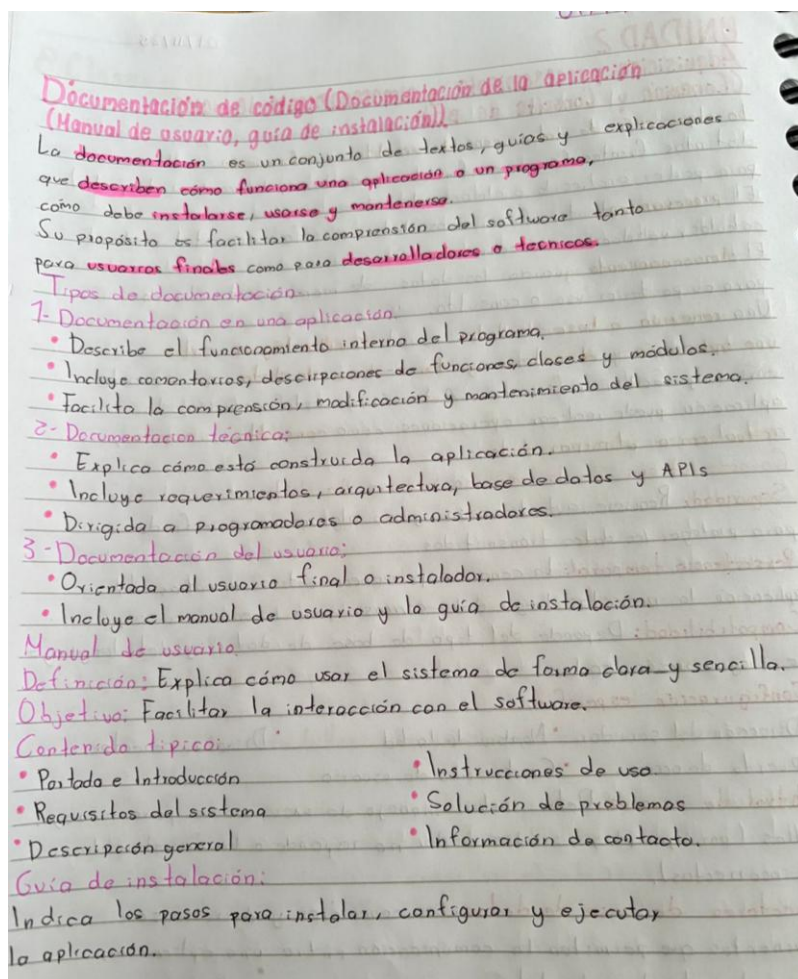 Documentación de código (Documentación de la aplicación
(Manual de usuario, guía de instalación))
La documentación es un conjunto de textos, guías y explicaciones
que describen cómo funciona una aplicación o un programa,
cómo debe instalarse, usarse y mantenerse.
Su propósito es facilitar la comprensión del software tanto
para usuarios finales como para desarrolladores o técnicos.
Tipos de documentación
1- Documentación en una aplicación.
• Describe el funcionamiento interno del programa.
• Incluye comentarios, descripciones de funciones, clases y módulos.
• Facilita la comprensión, modificación y mantenimiento del sistema.
2- Documentación técnica:
• Explica cómo está construida la aplicación.
• Incluye requerimientos, arquitectura, base de datos y APIs
• Dirigida a programadores o administradores.
3- Documentación del usuario:
• Orientada al usuario final o instalador.
• Incluye el manual de usuario y la guía de instalación.
Manual de usuario.
Definición: Explica cómo usar el sistema de forma clara y sencilla.
Objetivo: Facilitar la interacción con el software.
Contenido típico:
• Portada e Introducción
• Requisitos del sistema
• Descripción general
• Instrucciones de uso.
• Solución de problemas
• Información de contacto.
Guía de instalación:
Indica los pasos para instalar, configurar y ejecutar
la aplicación.